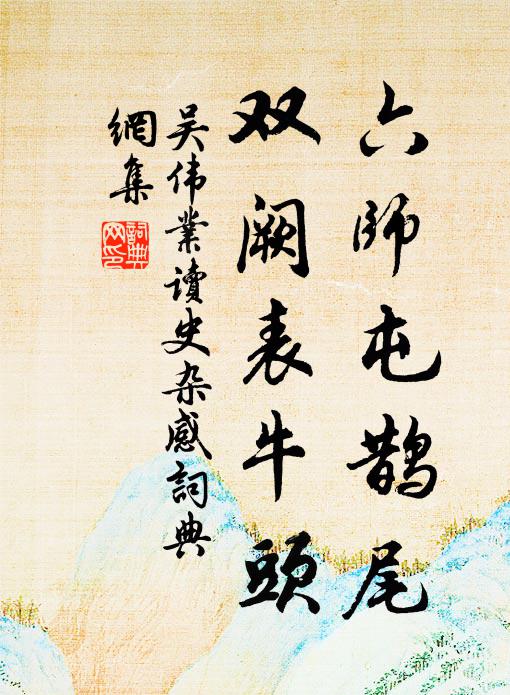 六师屯鹊尾
双阙表牛头
吴伟業讀史杂感詞典
網集
詞典
网印